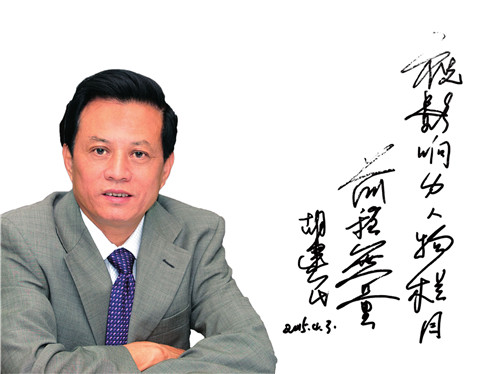 祝影响力人物栏目
前程无量
胡建民
2005.4.3.